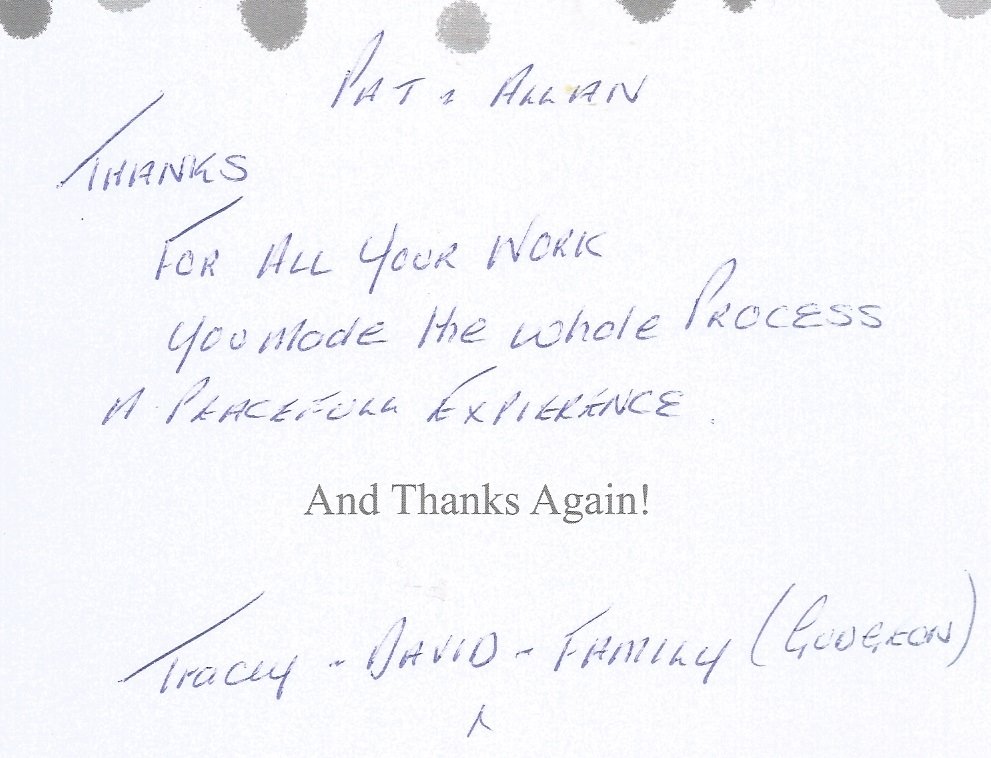 PAT & ALLAN
THANKS
FOR ALL YOUR WORK
you made the whole PROCESS
A PEACEFULL EXPIERENCE.
And Thanks Again!
Tracey - DAVID - FAMILY (GUDGEON)